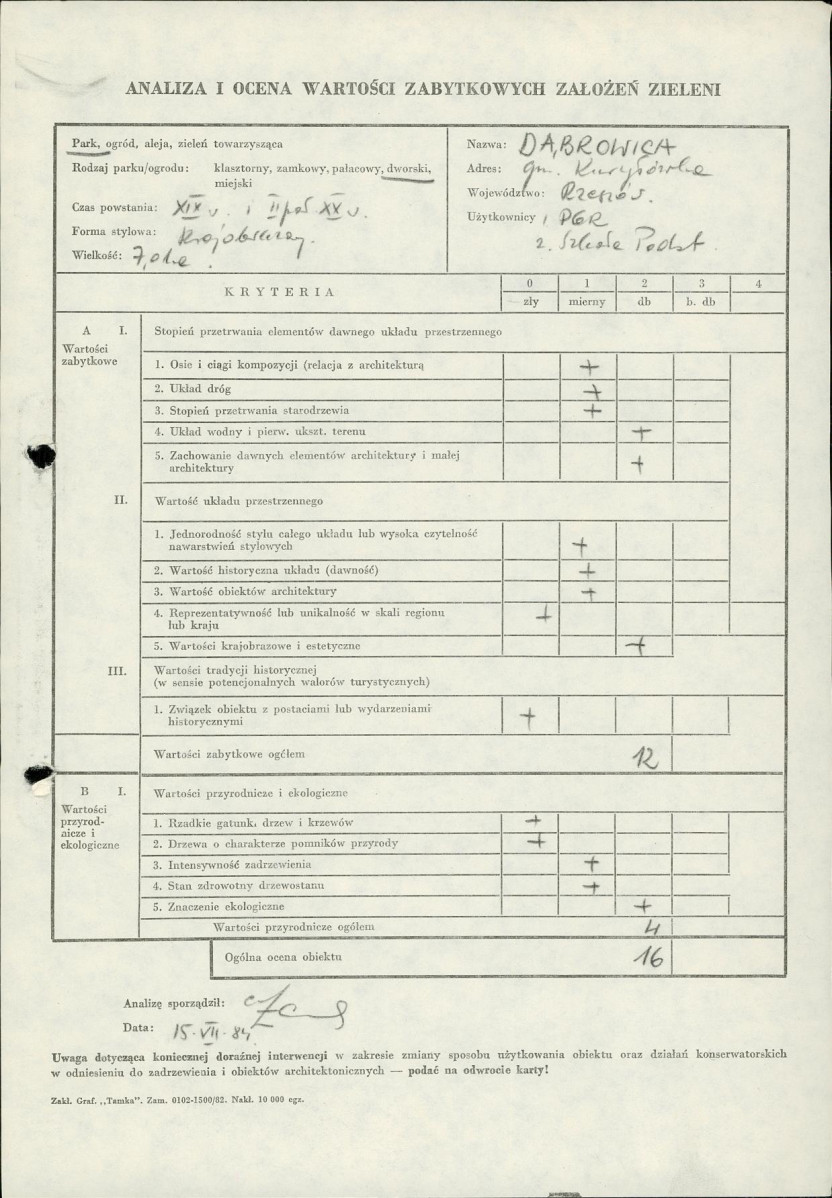 ANALIZA I OCENA WARTOŚCI ZABYTKOWYCH ZAŁOŻEŃ ZIELENI
Park, ogród, aleja, zieleń towarzysząca
Rodzaj parku/ogrodu: klasztorny, zamkowy, pałacowy, dworski,
miejski
Czas powstania: XIX w. i II poł XX w.
Forma stylowa: Krajobrazowy.
Wielkość: 7,0 ha.
Nazwa: DĄBROWICA
Adres: gm. Kuryłówka
Województwo: Rzeszów.
Użytkownicy 1 PGR
2. Szkoła Podst.
KRYTERIA
0 1 2 3 4
zły mierny db b. db
A I. Stopień przetrwania elementów dawnego układu przestrzennego
Wartości
zabytkowe
1. Osie i ciągi kompozycji (relacja z architekturą +
2. Układ dróg +
3. Stopień przetrwania starodrzewia +
4. Układ wodny i pierw. ukszt. terenu +
5. Zachowanie dawnych elementów architektury i małej
architektury +
II. Wartość układu przestrzennego
1. Jednorodność stylu całego układu lub wysoka czytelność
nawarstwień stylowych +
2. Wartość historyczna układu (dawność) +
3. Wartość obiektów architektury +
4. Reprezentatywność lub unikalność w skali regionu
lub kraju +
5. Wartości krajobrazowe i estetyczne +
III. Wartości tradycji historycznej
(w sensie potencjonalnych walorów turystycznych)
1. Związek obiektu z postaciami lub wydarzeniami
historycznymi +
Wartości zabytkowe ogółem 12
B I. Wartości przyrodnicze i ekologiczne
Wartości
przyrod-
nicze i
ekologiczne
1. Rzadkie gatunk. drzew i krzewów +
2. Drzewa o charakterze pomników przyrody +
3. Intensywność zadrzewienia +
4. Stan zdrowotny drzewostanu +
5. Znaczenie ekologiczne +
Wartości przyrodnicze ogółem 4
Ogólna ocena obiektu 16
Analizę sporządził:
Data: 15.VII.84
Uwaga dotycząca koniecznej doraźnej interwencji w zakresie zmiany sposobu użytkowania obiektu oraz działań konserwatorskich
w odniesieniu do zadrzewienia i obiektów architektonicznych — podać na odwrocie karty!
Zakł. Graf. „Tamka". Zam. 0102-1500/82. Nakł. 10 000 egz.